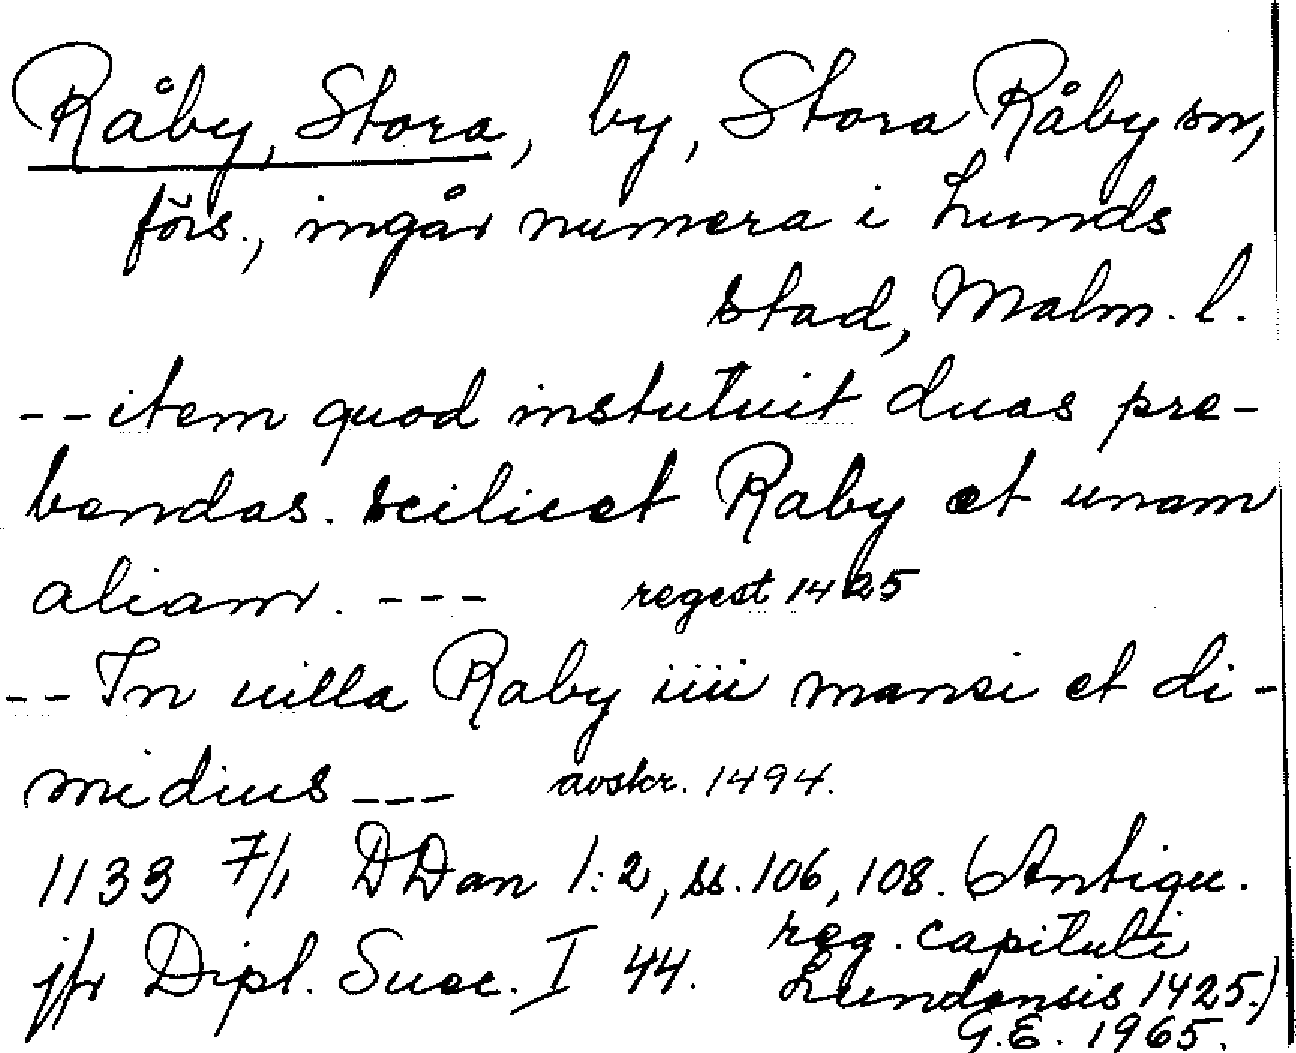 Råby, Stora, by, Stora Råby sn,
förs., ingår numera i Lunds
stad, Malm. l.
-- item quod instutuit duas pre-
bendas. scilicet Raby et unam
aliam. --- regest 1425
-- In uilla Raby iiii mansi et di-
midius --- avskr. 1494.
1133 7/1 DDan 1:2, ss. 106, 108. (Antiqu.
reg. capituli
jfr Dipl. Suec. I 44. Lundensis 1425.)
G.E. 1965.